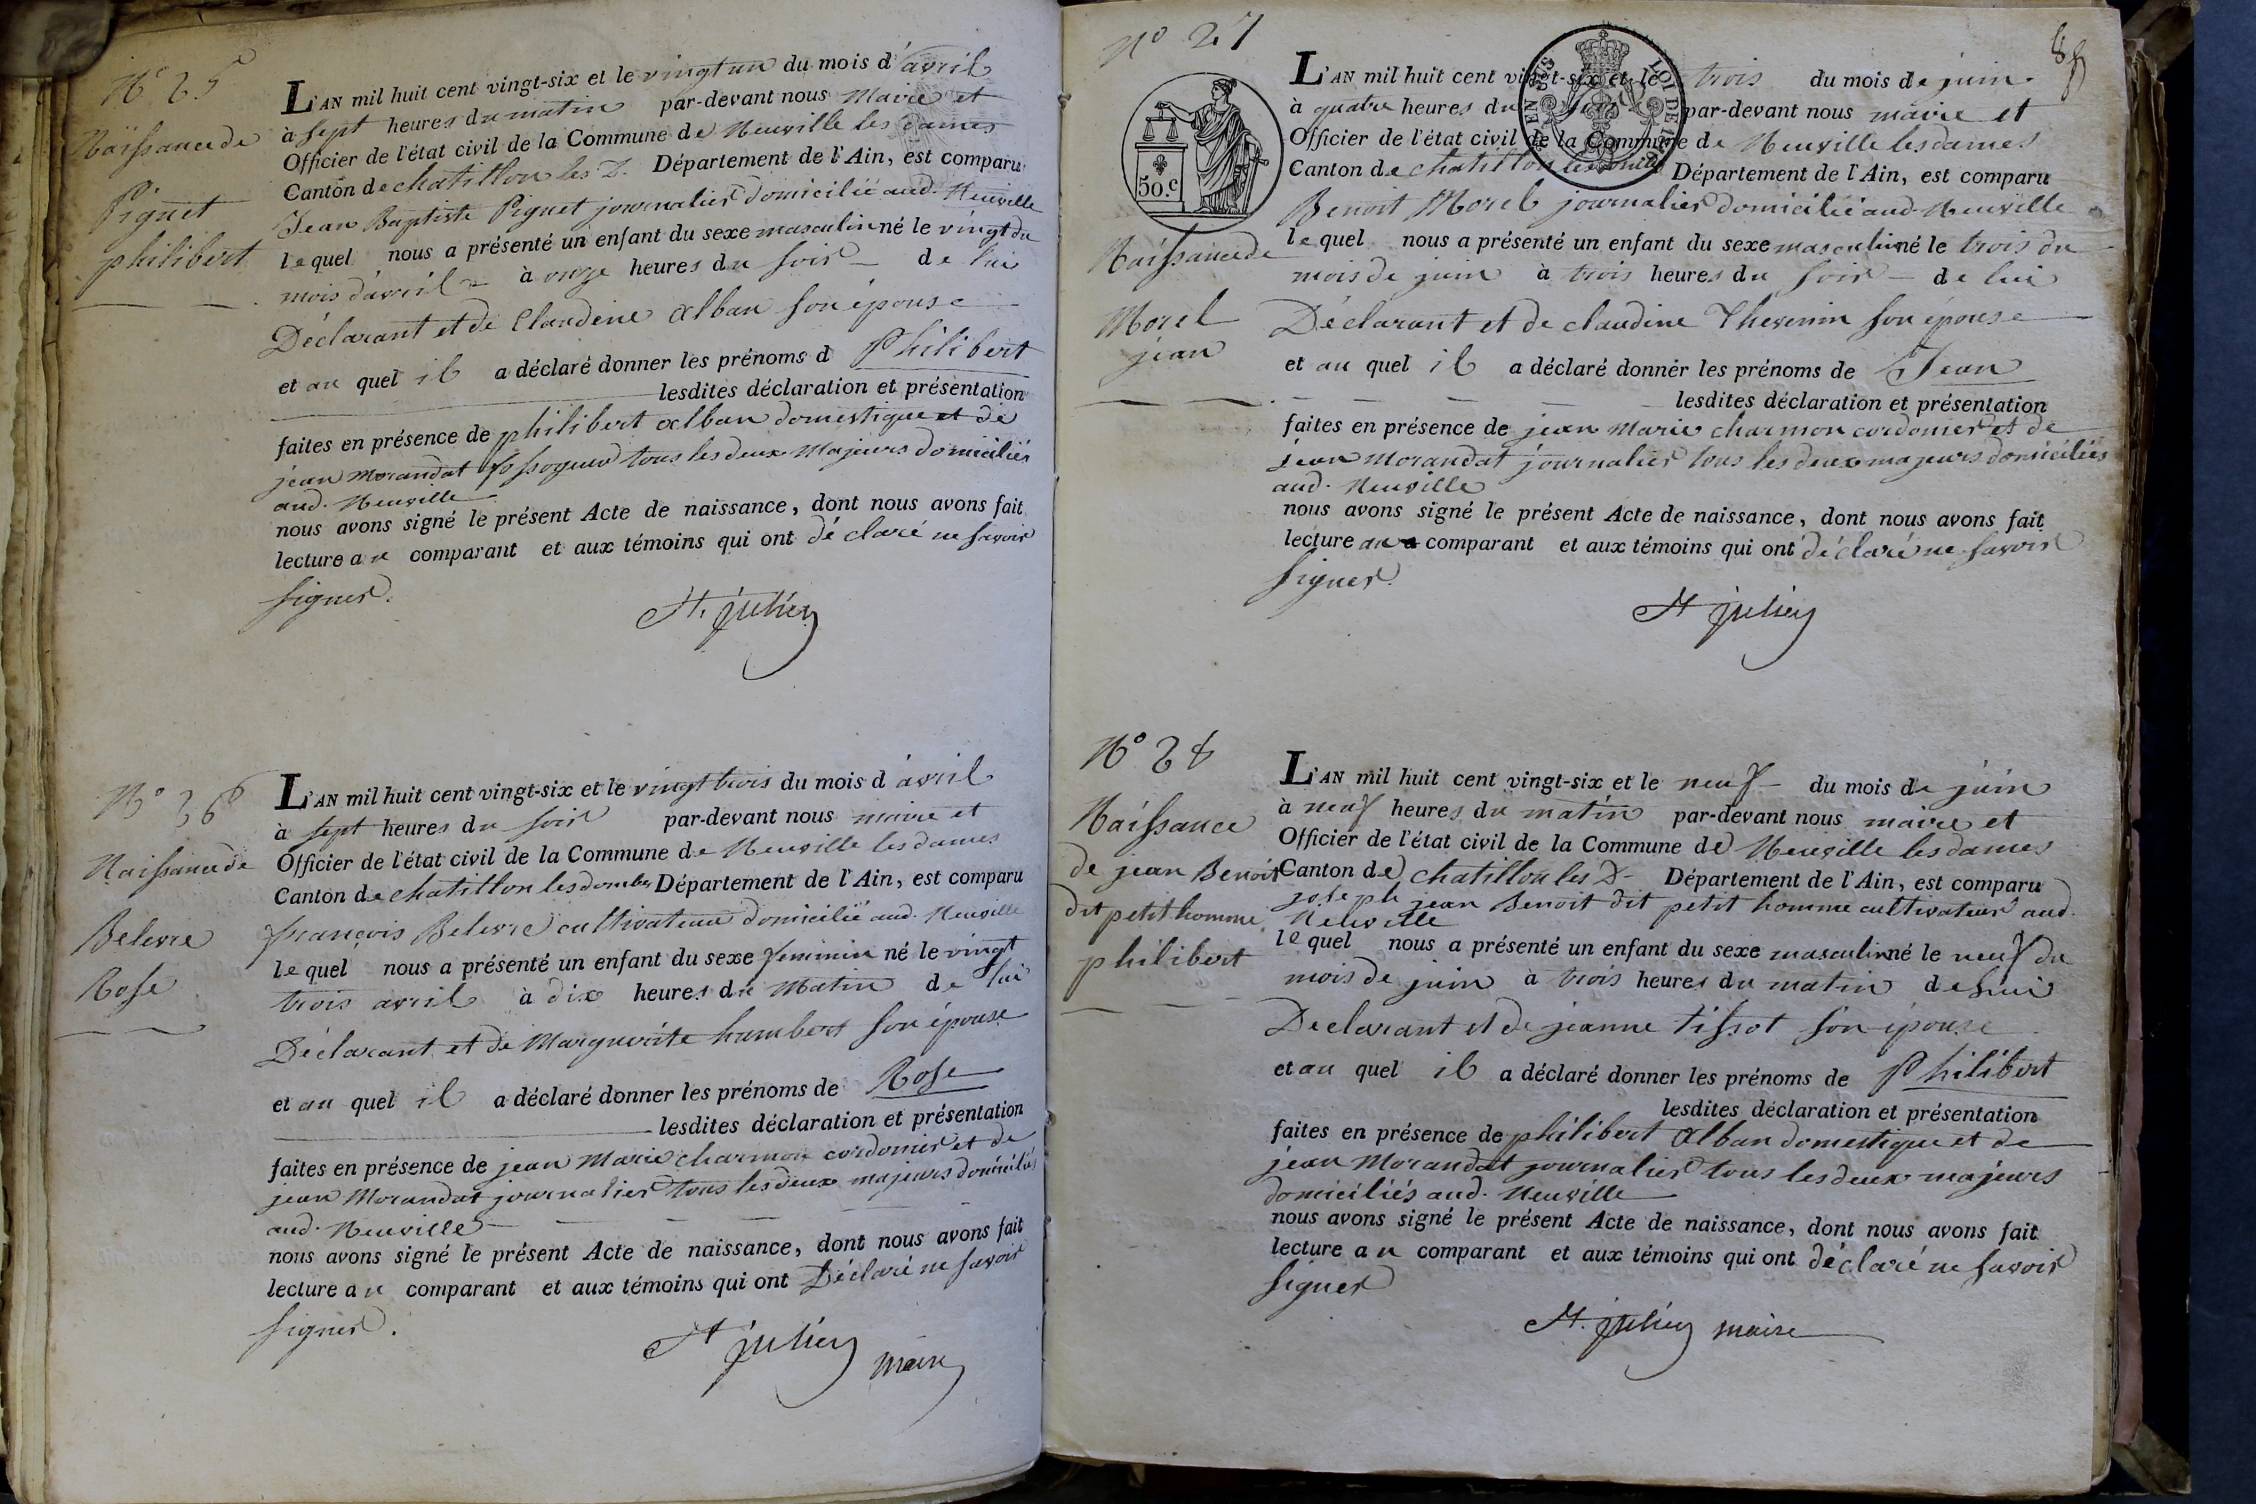 N° 25
Naissance de
Piguet
philibert
L'AN mil huit cent vingt-six et le vingt un du mois d'avril
à sept heures du matin par-devant nous Maire et
Officier de l'état civil de la Commune de Neuville les dames
Canton de chatillon les D. Département de l'Ain, est comparu
Jean Baptiste Piguet journalier domicilié aud. Neuville
lequel nous a présenté un enfant du sexe masculin né le vingt du
mois d'avril à onze heures du soir de lui
Déclarant et de Claudine Alban son épouse
et au quel il a déclaré donner les prénoms d Philibert
lesdites déclaration et présentation
faites en présence de philibert Alban domestique et de
jean Morandat tous les deux Majeurs domiciliés
aud. Neuville
nous avons signé le présent Acte de naissance, dont nous avons fait
lecture au comparant et aux témoins qui ont déclaré ne savoir
signer.
St. julien
N° 26
Naissance de
Belevre
Rose
L'AN mil huit cent vingt-six et le vingt trois du mois d'avril
à sept heures du soir par-devant nous maire et
Officier de l'état civil de la Commune de Neuville les dames
Canton de chatillon les dombes Département de l'Ain, est comparu
françois Belevre cultivateur domicilié aud. Neuville
lequel nous a présenté un enfant du sexe feminin né le vingt
trois avril à dix heures du Matin de lui
Déclarant et de Marguerite humbert son épouse
et au quel il a déclaré donner les prénoms de Rose
lesdites déclaration et présentation
faites en présence de jean Marie charmon cordonier et de
jean Morandat journalier tous les deux majeurs domiciliés
aud. Neuville
nous avons signé le présent Acte de naissance, dont nous avons fait
lecture au comparant et aux témoins qui ont Déclaré ne savoir
signer.
St julien
maire
N° 27
50.c
EN SUS
LOI DE
Naissance de
Morel
jean
L'AN mil huit cent vingt-six et le trois du mois de juin
à quatre heures du soir par-devant nous maire et
Officier de l'état civil de la Commune de Neuville les dames
Canton de chatillon les dombes Département de l'Ain, est comparu
Benoit Morel journalier domicilié aud. Neuville
lequel nous a présenté un enfant du sexe masculin né le trois du
mois de juin à trois heures du soir de lui
Déclarant et de claudine Thevenin son épouse
et au quel il a déclaré donner les prénoms de Jean
lesdites déclaration et présentation
faites en présence de jean Marie charmon cordonier et de
jean Morandat journalier tous les deux majeurs domiciliés
aud. Neuville
nous avons signé le présent Acte de naissance, dont nous avons fait
lecture au comparant et aux témoins qui ont déclaré ne savoir
signer.
St julien
N° 28
Naissance
de jean Benoit
dit petit homme
philibert
L'AN mil huit cent vingt-six et le neuf du mois de juin
à neuf heures du matin par-devant nous maire et
Officier de l'état civil de la Commune de Neuville les dames
Canton de chatillon les D. Département de l'Ain, est comparu
joseph jean Benoit dit petit homme cultivateur aud.
Neuville
lequel nous a présenté un enfant du sexe masculin né le neuf du
mois de juin à trois heures du matin de lui
Déclarant et de jeanne tissot son épouse
et au quel il a déclaré donner les prénoms de Philibert
lesdites déclaration et présentation
faites en présence de philibert Alban domestique et de
jean Morandat journalier tous les deux majeurs
domiciliés aud. Neuville
nous avons signé le présent Acte de naissance, dont nous avons fait
lecture au comparant et aux témoins qui ont déclaré ne savoir
signer
St. julien maire